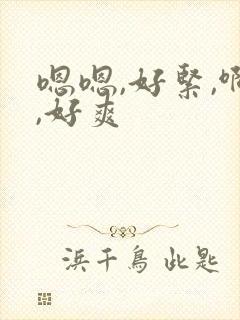 嗯嗯,好緊,啊
,好爽
浜千鳥 此匙